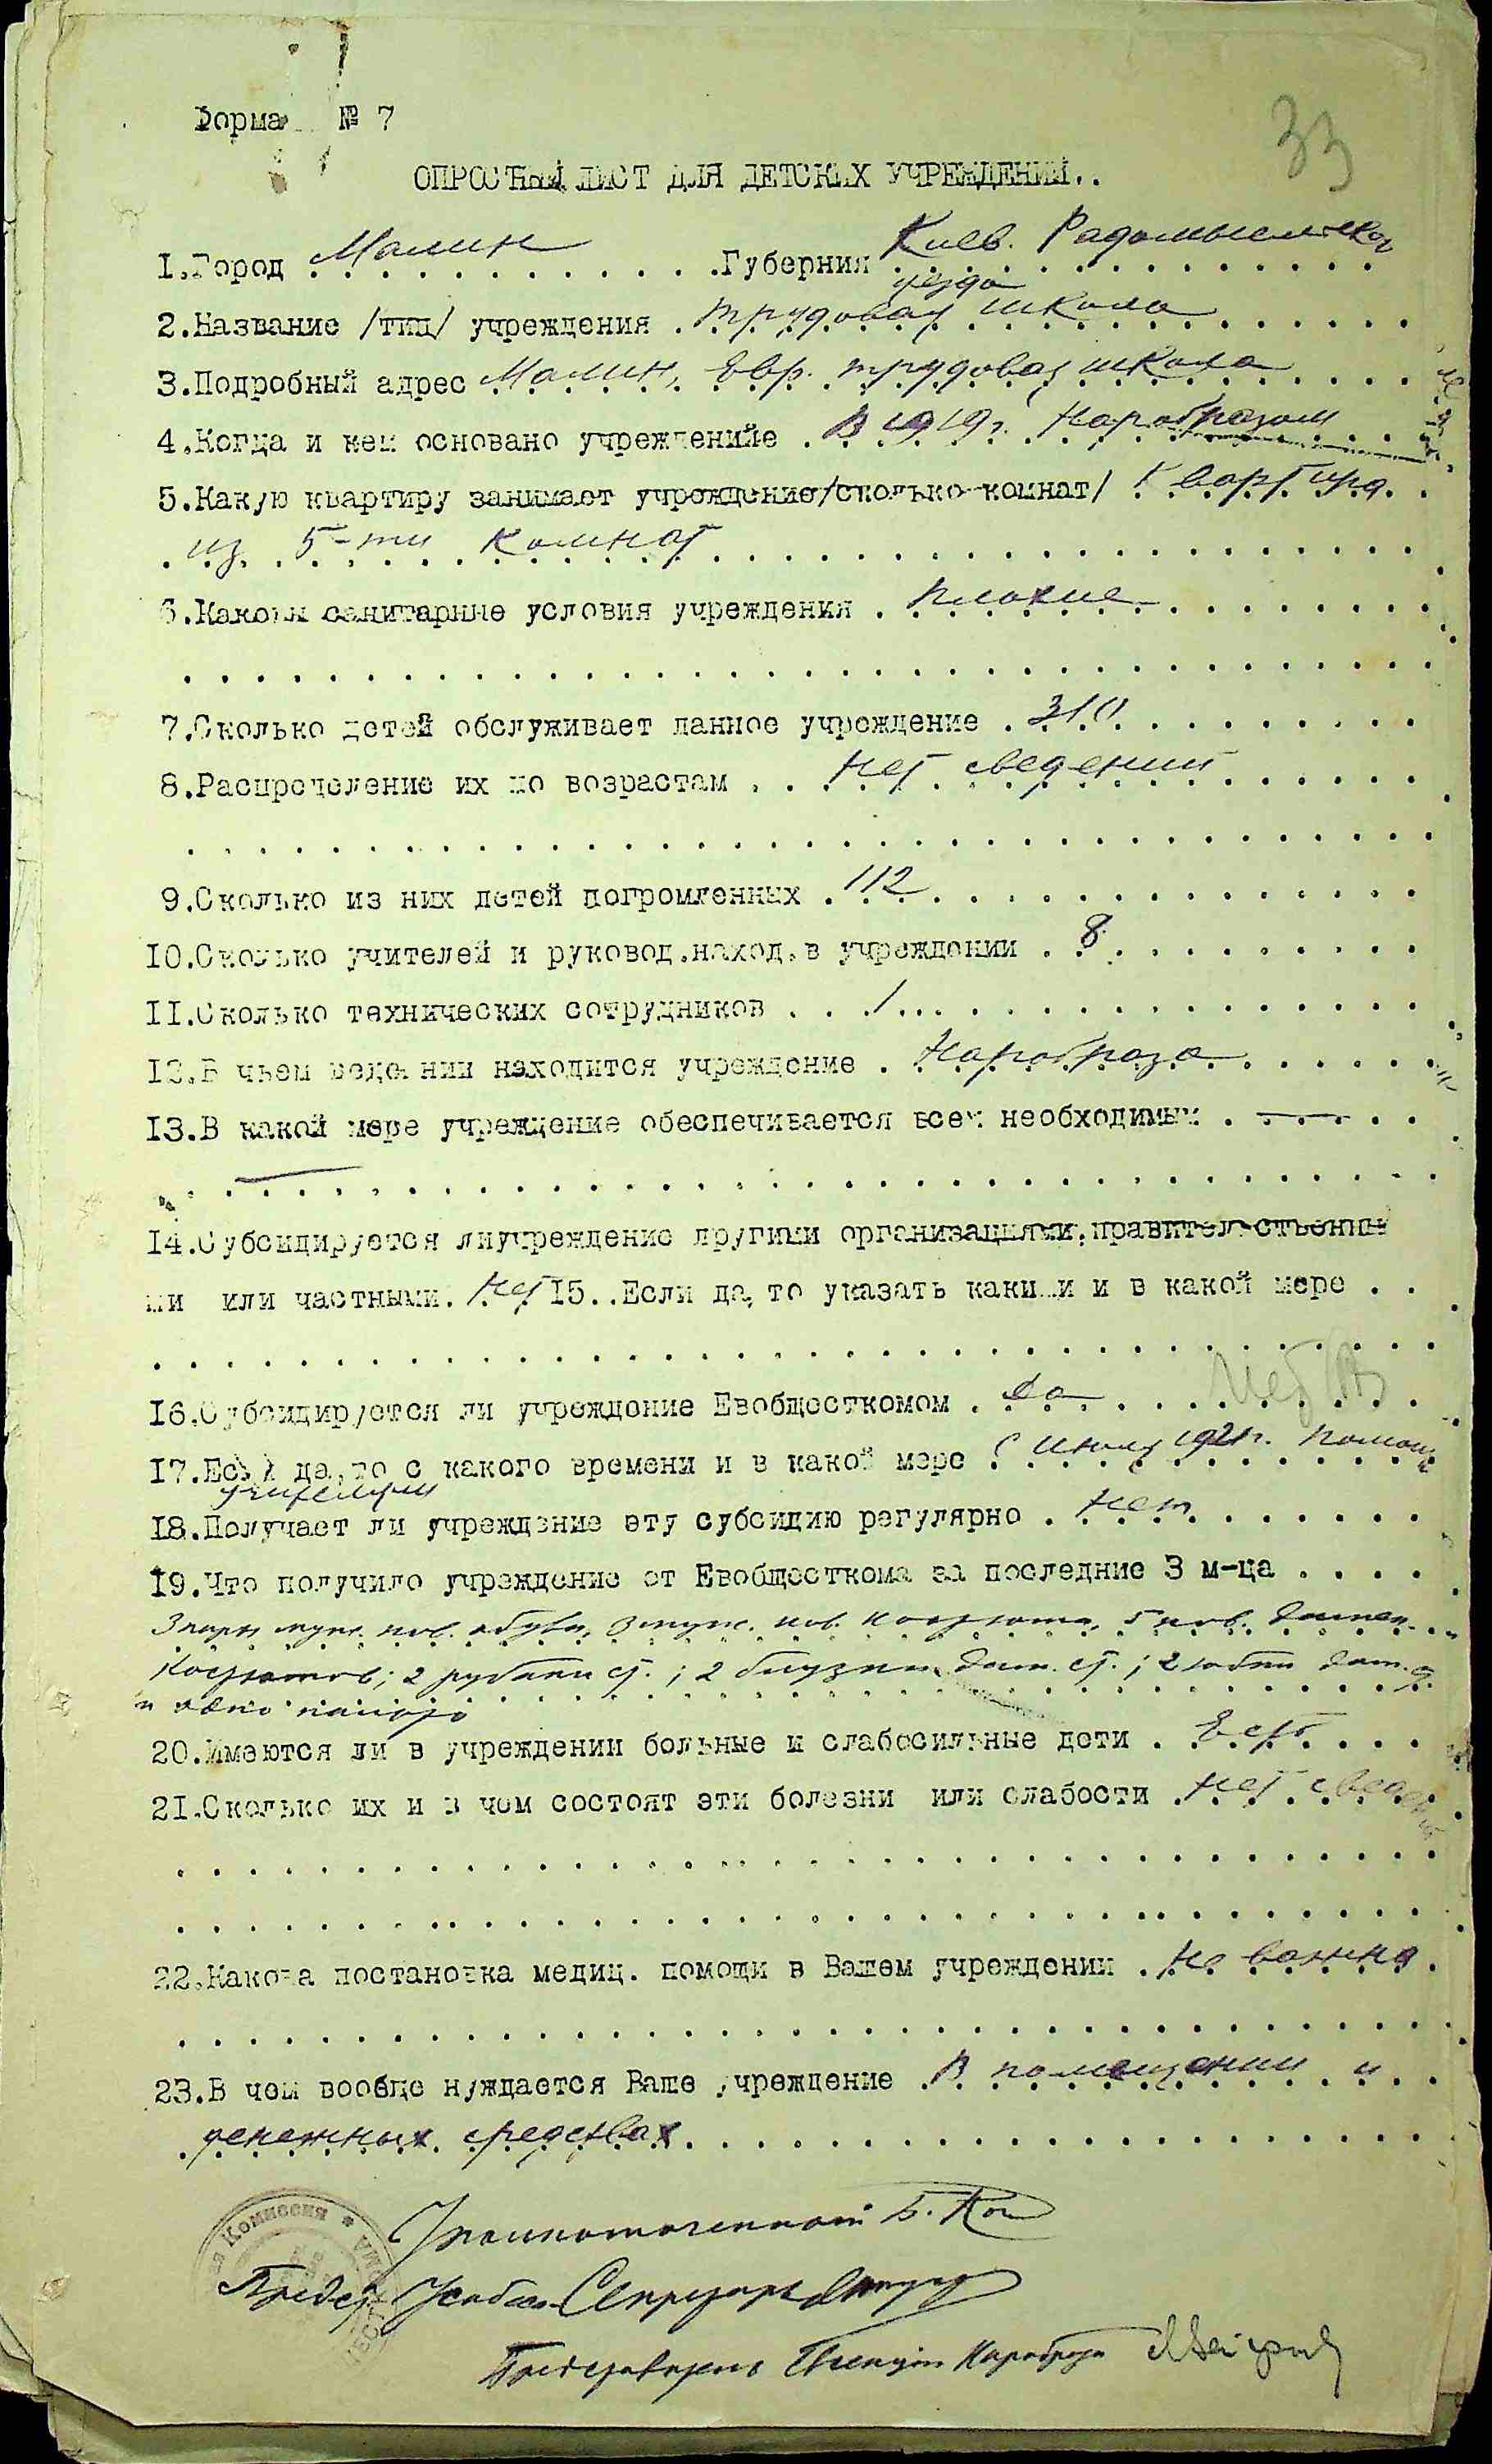 Форма № 7
33
ОПРОСНЫЙ ЛИСТ ДЛЯ ДЕТСКИХ УЧРЕЖДЕНИЙ..
1.Город Малин Губерния Киев. Радомысльског
уезда
2.Название /тип/ учреждения трудовая школа
3.Подробный адрес Малин, Евр. трудовая школа
4.Когда и кем основано учреждениӥе В 1919г. Наробразом
5.Какую квартиру занимает учреждение/сколько комнат/ Квартира
из 5-ти комнат
6.Каковы санитарные условия учреждения плохие
7.Сколько детей обслуживает данное учреждение 310
8.Распределение их по возрастам Нет сведений
9.Сколько из них детей погромленных 112
10.Сколько учителей и руковод.наход.в учреждении 8
11.Сколько технических сотрудников 1
12.В чьем ведении находится учреждение Наробраза
13.В какой мере учреждение обеспечивается всем необходимым —
14.Субсидируется лиучреждение другими организациями,правительственны
ми или частными. Нет 15..Если да,то указать какими и в какой мере
16.Субсидируется ли учреждение Евобщесткомом да
17.Если да,то с какого времени и в какой мере С июля 1921г. помощь
учителям
18.Получает ли учреждение эту субсидию регулярно нет
19.Что получило учреждение от Евобщесткома за последние 3 м-ца
3 пары муж. нов. обуви, 3 муж. нов. костюма, 5 нов. дамск.
костюмов; 2 рубахи ст.; 2 блузки дам. ст.; 2 юбки дам.
и одно пальто
20.Имеются ли в учреждении больные и слабосильные дети Есть
21.Сколько их и в чем состоят эти болезни или слабости Нет сведений
22.Какова постановка медиц. помощи в Вашем учреждении Не важна
23.В чем вообще нуждается Ваше учреждение В помещении и
денежных средствах
Комиссия
Уполномоченный Б. Ког
Предс. Секретарь
Представитель Наробраза